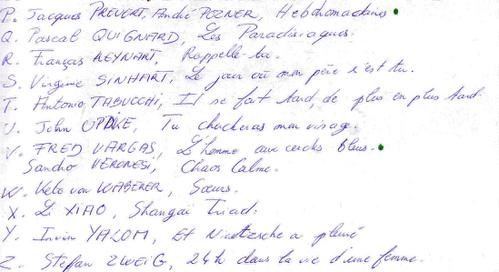 P. Jacques PREVERT, André POZNER, Hebdromadaires
Q. Pascal QUIGNARD, Les Paradisiaques.
R. François REYNAERT, Rappelle-toi.
S. Virginie LINHART, Le jour où mon père s'est tu.
T. Antonio TABUCCHI, Il se fait tard, de plus en plus tard.
U. John UPDIKE, Tu chercheras mon visage.
V. FRED VARGAS, L'homme aux cercles bleus.
Sandro VERONESI, Chaos Calme.
W. Keto von WABERER, Sœurs.
X. Li XIAO, Shangaï Triad.
Y. Irvin YALOM, Et Nietzsche a pleuré
Z. Stefan ZWEIG, 24h dans la vie d'une femme.